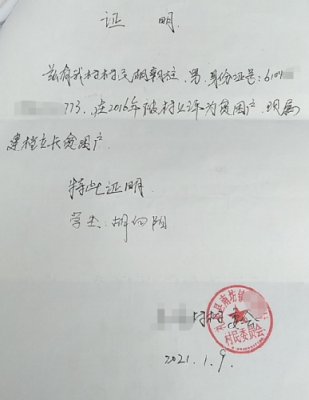 证 明
兹有我村村民胡朝柱，男，身份证号：6101
773，在2016年被村上评为贫困户，现属
建档立卡贫困户
特此证明
学生：胡向阳
村村委会
村民委员会
2021.1.9.